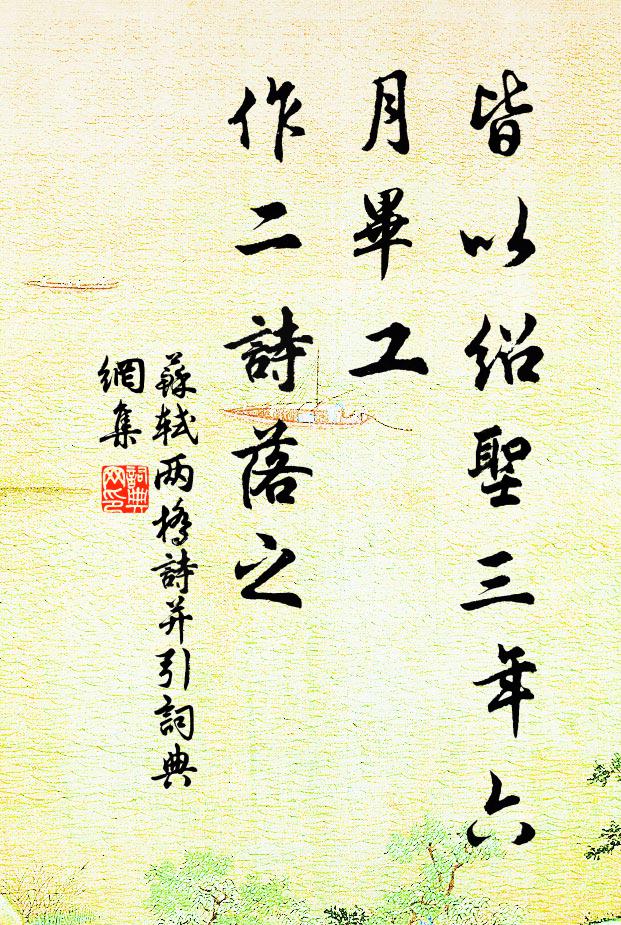 皆以紹聖三年六
月畢工
作二詩落之
蘇軾两橋詩并引詞典
網集
詞典網印